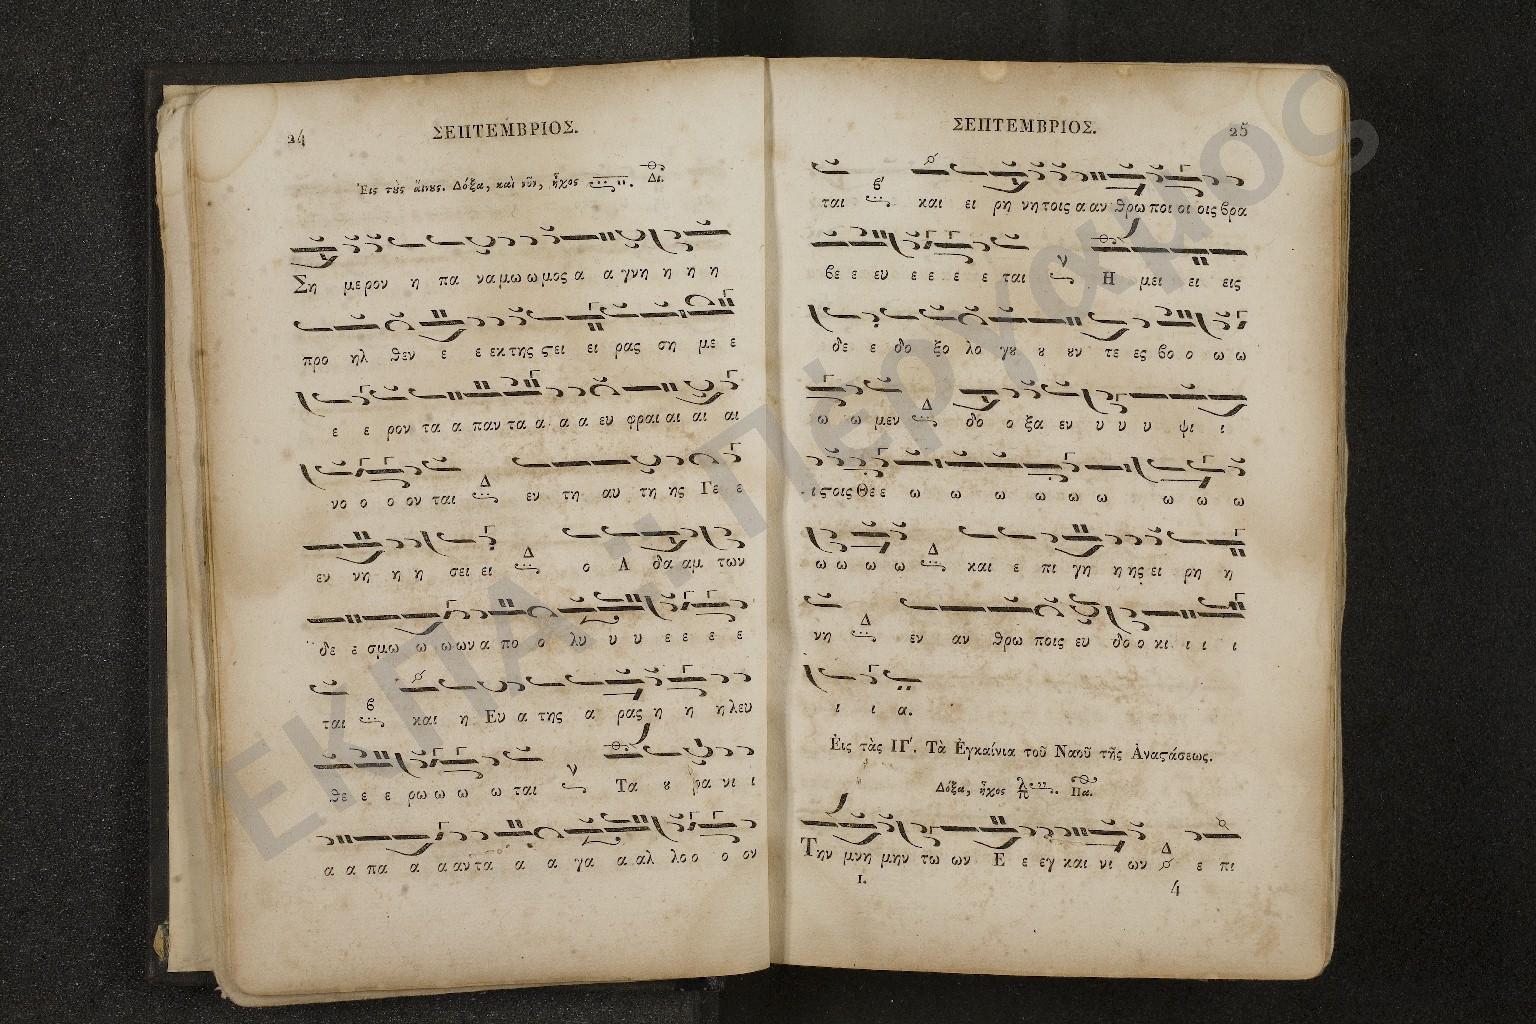 24
ΣΕΠΤΕΜΒΡΙΟΣ.
Εἰς τȣς αἴνους. Δόξα, καὶ νῦν, ἦχος Δι.
Ση με ρον η πα να μω ω μος α α γνη η η η
προ ηλ θεν ε ε εκ της ϛει ει ρας ση με ε
ε ε ρον τα α παν τα α α α ευ φραι αι αι αι
νο ο ο ον ται Δ εν τη αυ τη ης Γε ε
εν νη η η σει ει Δ ο Α δα αμ των
δε ε σμω ω ω ων α πο ο λυ υ υ ε ε ε ε
ται β και η Ευ α της α ρας η η η λευ
θε ε ε ρω ω ω ω ται ν Τα ȣ ρα νι ι
α α πα α α αν τα α α γα α αλ λο ο ο ον
ΣΕΠΤΕΜΒΡΙΟΣ.
25
ται β' και ει ρη νη τοις α αν θρω ποι οι οις βρα
βε ε ευ ε ε ε ε ται ν Η μει ει εις
δε ε δο ξο λο γȣ ȣ ȣν τε ες βο ο ω ω
ω ω μεν Δ δο ο ξα εν υ υ υ ψι ι
ι ϛοις Θε ε ω ω ω ω ω ω ω ω ω
ω ω ω ω Δ και ε πι γη η ης ει ρη η
νη Δ εν αν θρω ποις ευ δο ο κι ι ι ι
ι ι α.
Εἰς τὰς ΙΓ'. Τὰ Ἐγκαίνια τοῦ Ναοῦ τῆς Ἀναϛάσεως.
Δόξα, ἦχος Πα.
Την μνη μην τω ων Ε ε εγ και νι ων Δ ε πι
I.
4
ΕΚΠΑ
Περγαμος